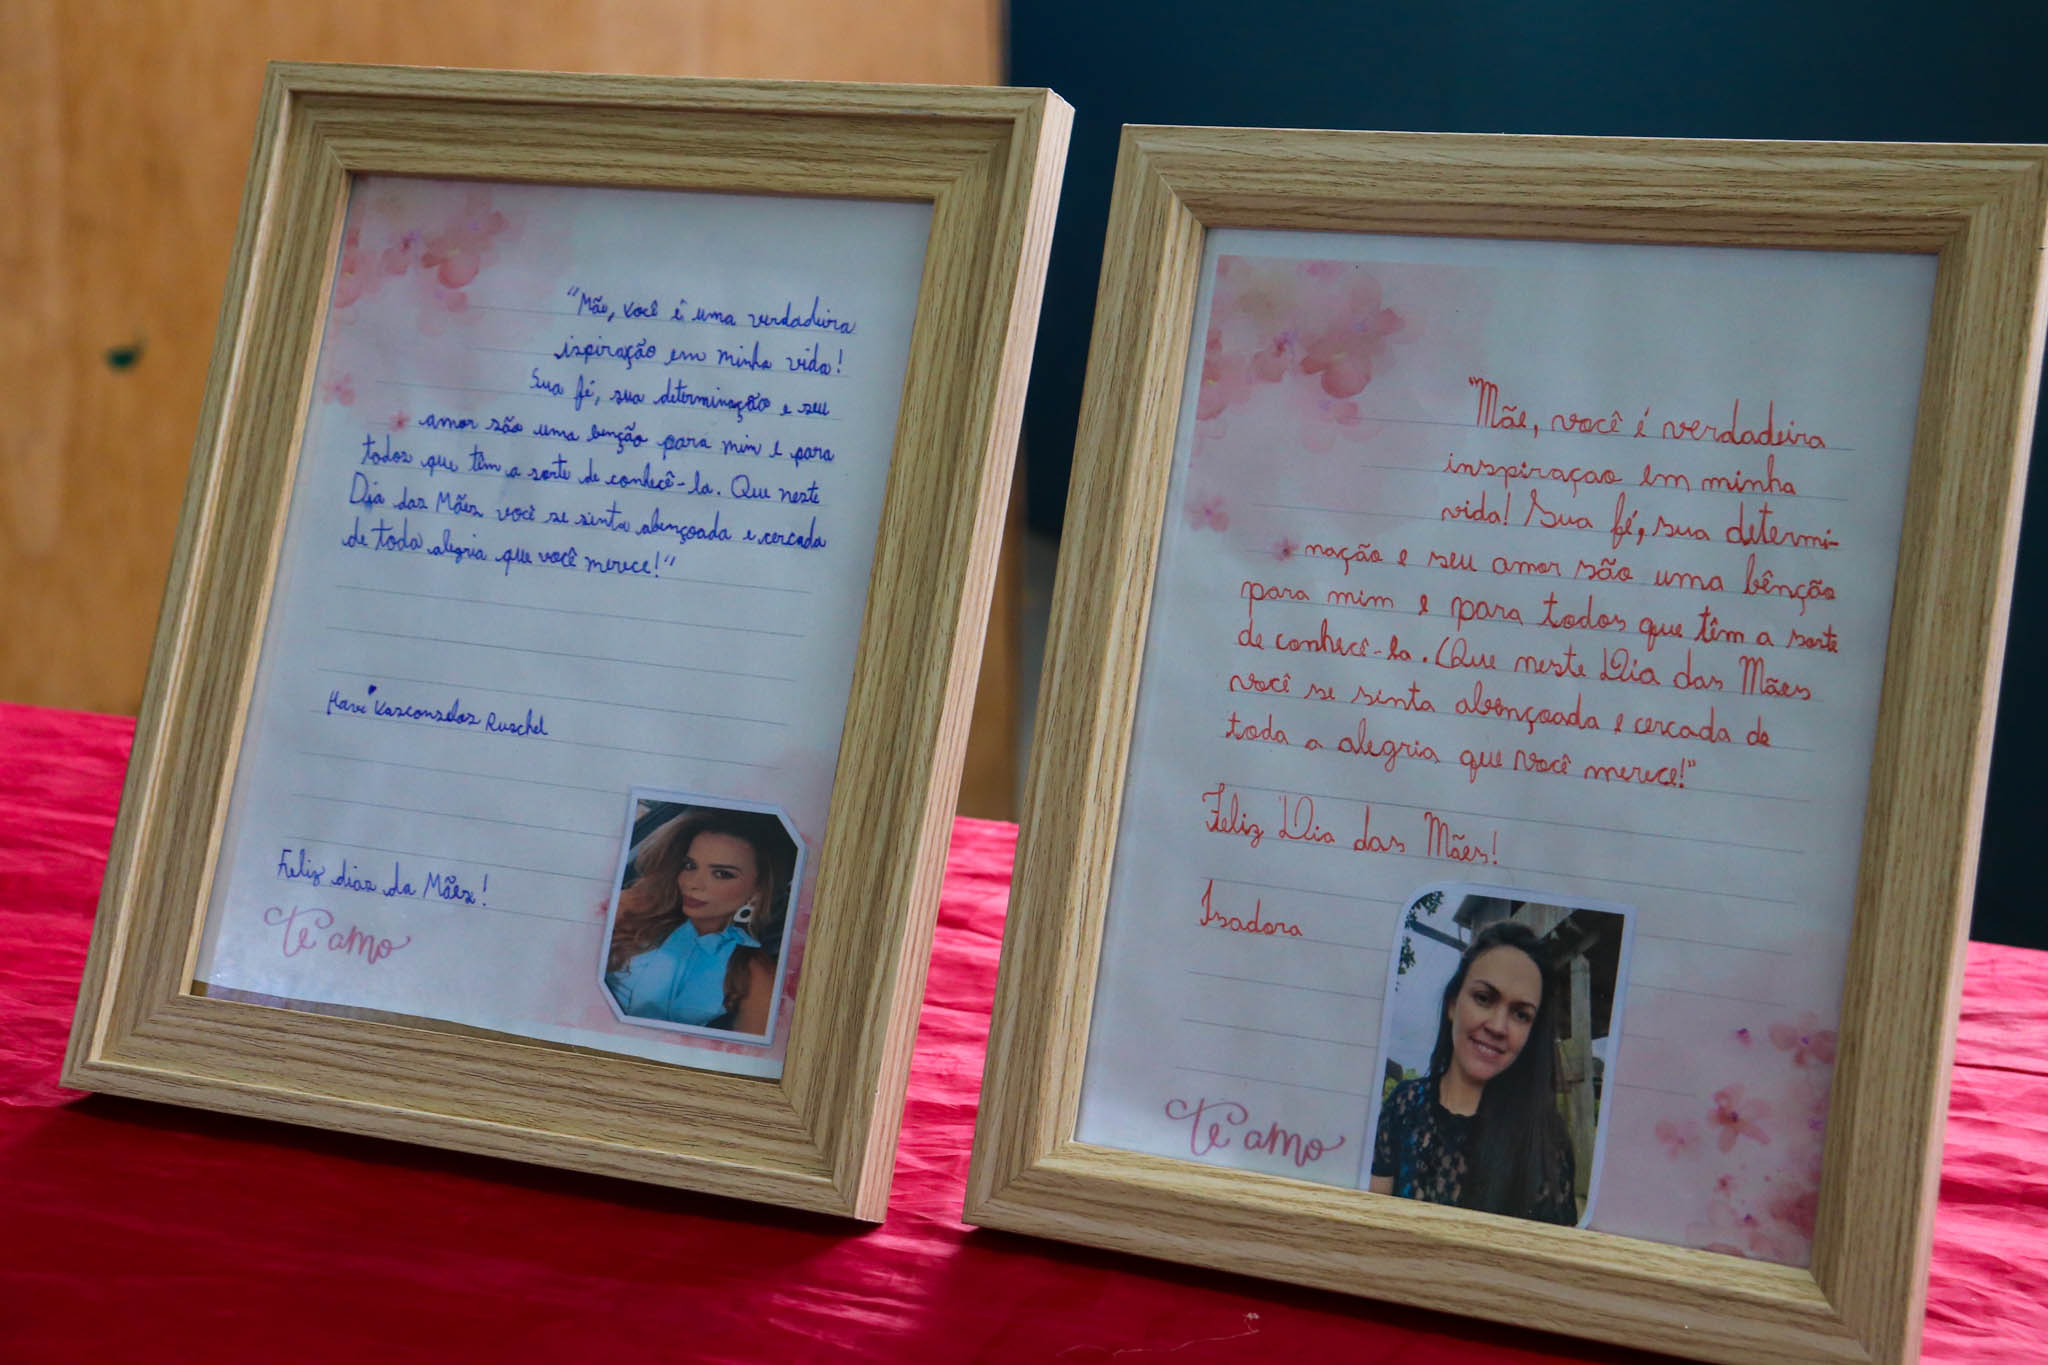 "Mãe, você é uma verdadeira
ispiração em minha vida!
Sua fé, sua determinação e seu
amor são uma benção para mim e para
todos que têm a sorte de conhecê-la. Que neste
Dia das Mães você se sinta abençoada e cercada
de toda alegria que você merece!"
Vasconselos Ruschel
Feliz dias da Mães!
te amo
"Mãe, você é verdadeira
inspiraçao em minha
vida! Sua fé, sua determi-
nação e seu amor são uma bênção
para mim e para todos que têm a sorte
de conhecê-la. Que neste Dia das Mães
você se sinta abençoada e cercada de
toda a alegria que você merece!"
Feliz Dia das Mães!
Isadora
te amo